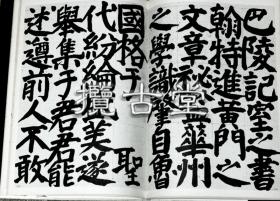 巴陵記室之書
翰特進黃門之
文章秘監華州
之學識肇自魯
國格于 聖
代紛綸盛美遂
舉集于君君能
述遵前人不敢
攬古堂